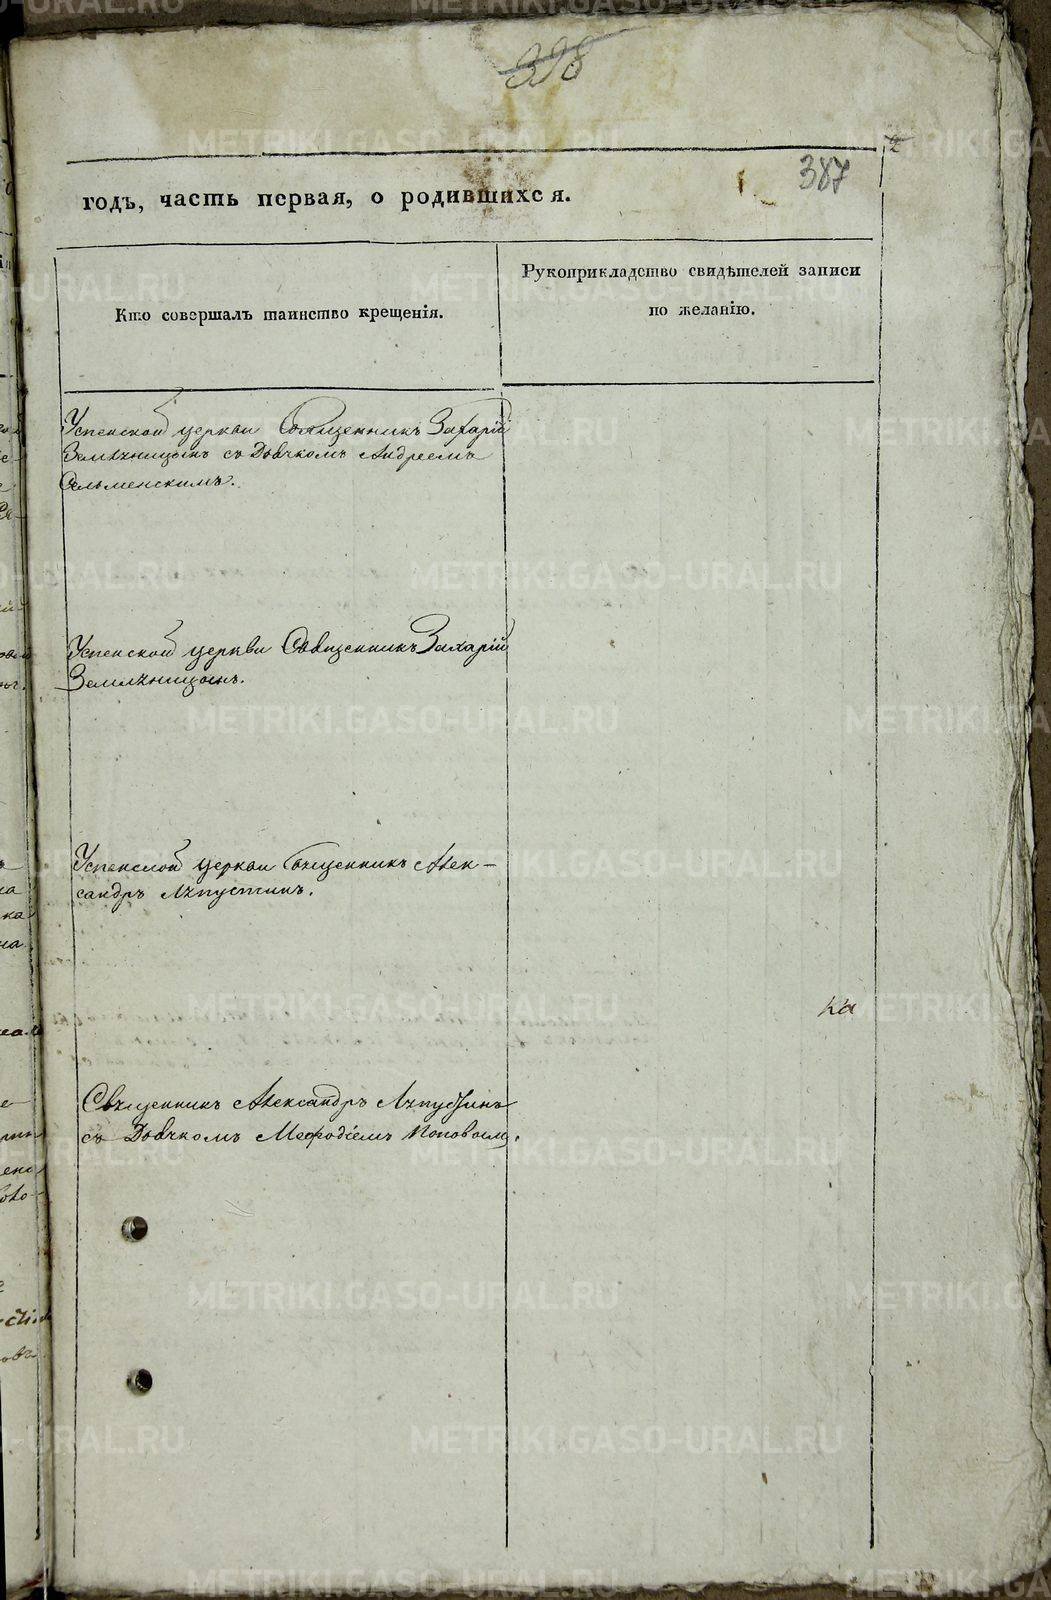 398
387
годъ, часть первая, о родившихся.
Кто совершалъ таинство крещенія.
Рукоприкладство свидѣтелей записи
по желанію.
Успенской церкви Священникъ Захарій
съ Дьячкомъ Андреемъ
Успенской церкви Священникъ Захарій
Успенской церкви Священникъ Алек-
сандръ Лѣпустинъ.
ка
Священникъ Александръ Лѣпустинъ
съ Дьячкомъ Меѳодіемъ Поповымъ.
METRIKI.GASO-URAL.RU